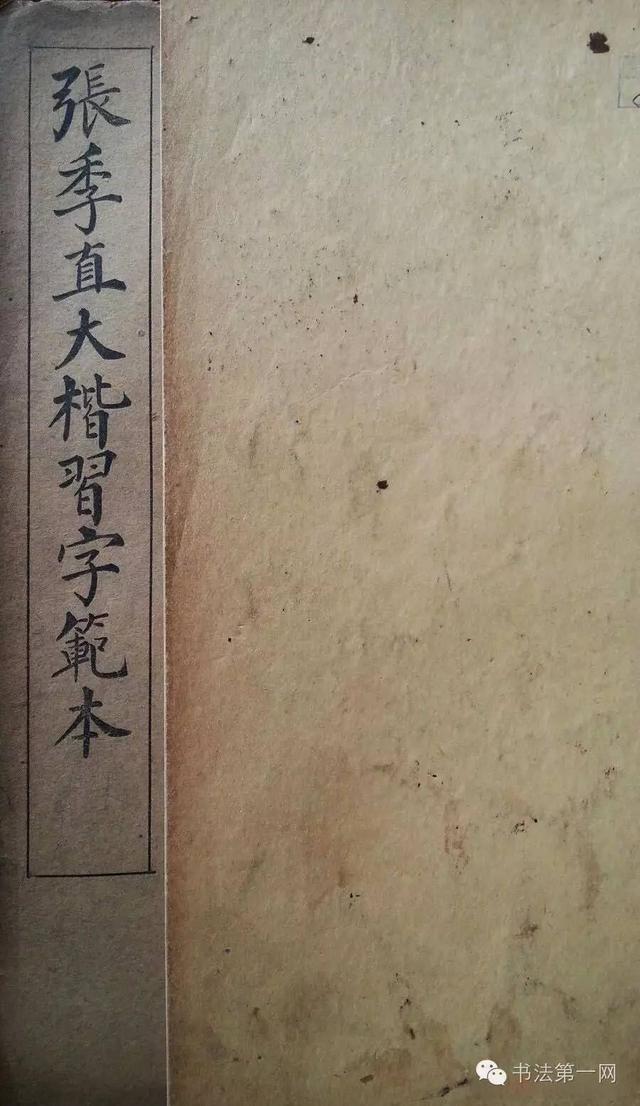 張季直大楷習字範本
书法第一网